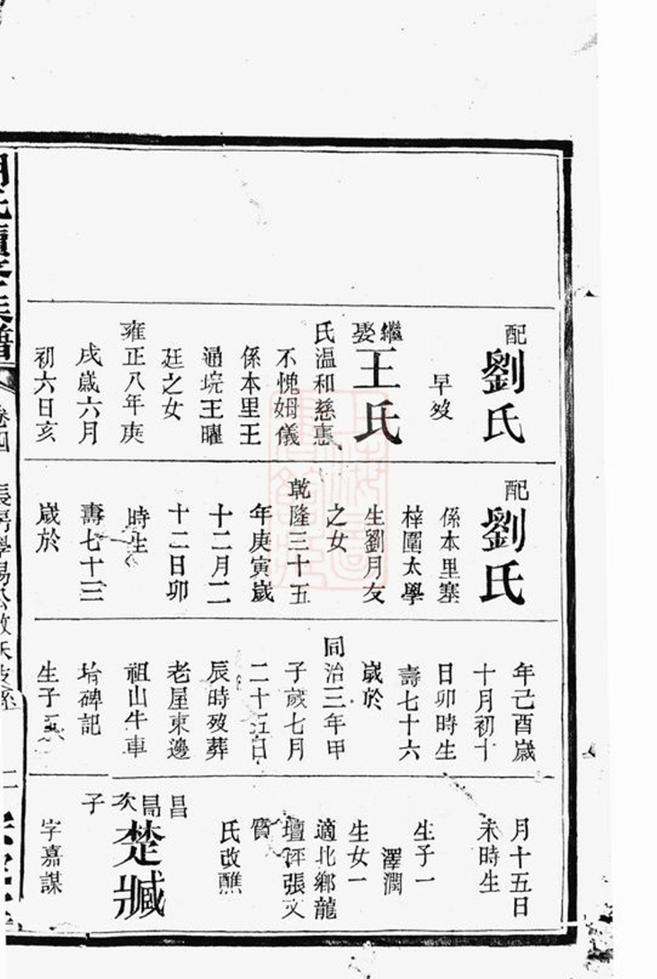 配劉氏
早歿
繼娶王氏
氏溫和慈惠
不愧姆儀
係本里王
通垸王曜
廷之女
雍正八年庚
戌歲六月
初六日亥
配劉氏
係本里塞
梓圍太學
生劉月友
之女
乾隆三十五
年庚寅歲
十二月二
十二日卯
時生
壽七十三
歲於
年己酉歲
十月初十
日卯時生
壽七十六
歲於
同治三年甲
子歲七月
二十五日
辰時歿葬
老屋東邊
祖山牛車
碑記
生子五
月十五日
未時生
生子一
澤潤
生女一
適北鄉龍
壇坪張文
氏改醮
昌
次子
楚臧
字嘉謀
氏續修族譜
卷四
長房學易公
二